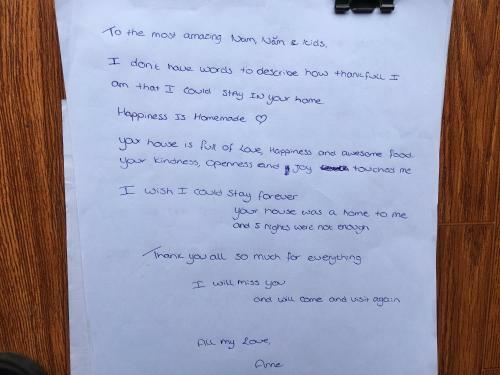 To the most amazing Nam, Năm & kids,
I dont have words to describe how thankfull I
am that I could stay in your home
Happiness Is Homemade ♡
your house is full of love, Happiness and awesome food
your kindness, openness and joy touched me
I wish I could stay forever
your house was a home to me
and 5 nights were not enough
Thank you all so much for everything
I will miss you
and will come and visit again
All my love,
Anne